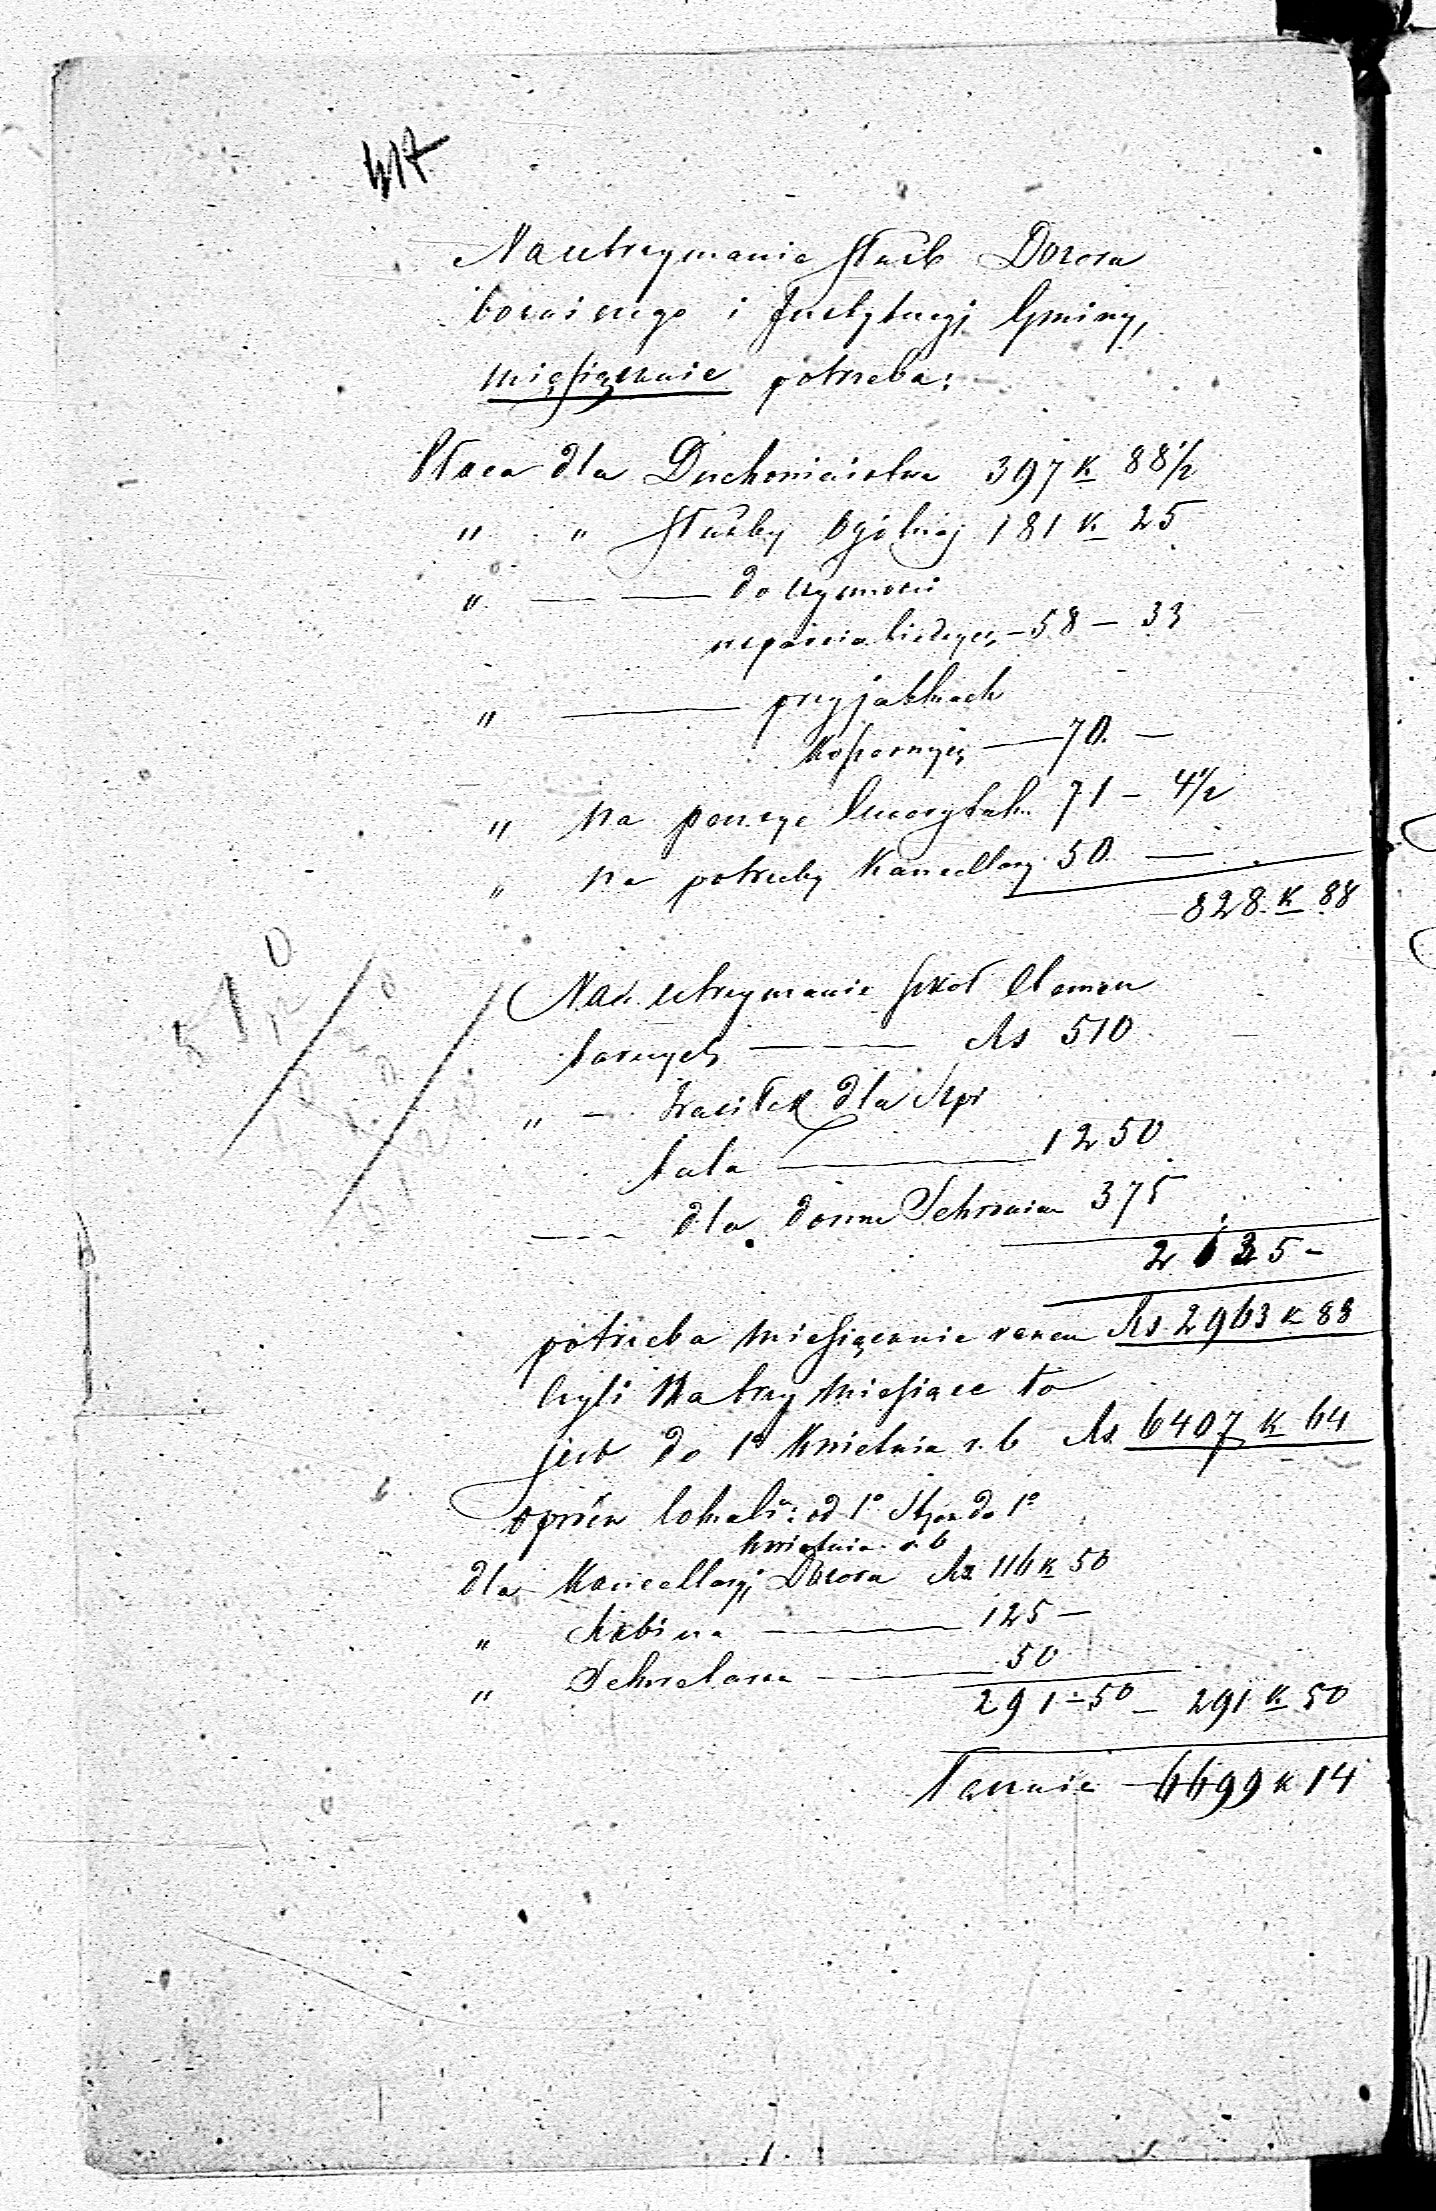 417
Na utrzymanie służb Dozoru
bożniczego i Instytucyj Gminy,
miesięcznie potrzeba:
Płaca dla Duchowieństwa 397 K 88 1/2
" " służby Ogólnej 181 K 25
" — — do czynności
wsparcia biednych — 58 — 33
" — przy jatkach
Koszernych — 70. —
" na pomoc 71 — 4 1/2
" na potrzeby Kancellary. 50. —
828. K 88
Na utrzymanie szkół Elemen
tarnych — Rs 510
" — Zasiłek dla Szpi
tala — 1250
— dla domu Schronien 375
2135 —
potrzeba miesięcznie razem Rs. 2963 K 88
czyli na trzy miesiące to
jest do 1o Kwietnia r. b Rs. 6407 K 64
oprócz lokali: od 1o Stycz. do 1o
Kwietnia r. b
dla Kancellaryi Dozoru Rs 116 K 50
" Rabina — 125 —
" Sekretarza — 50
291 - 50 — 291 K 50
Łącznie — 6699 K 14